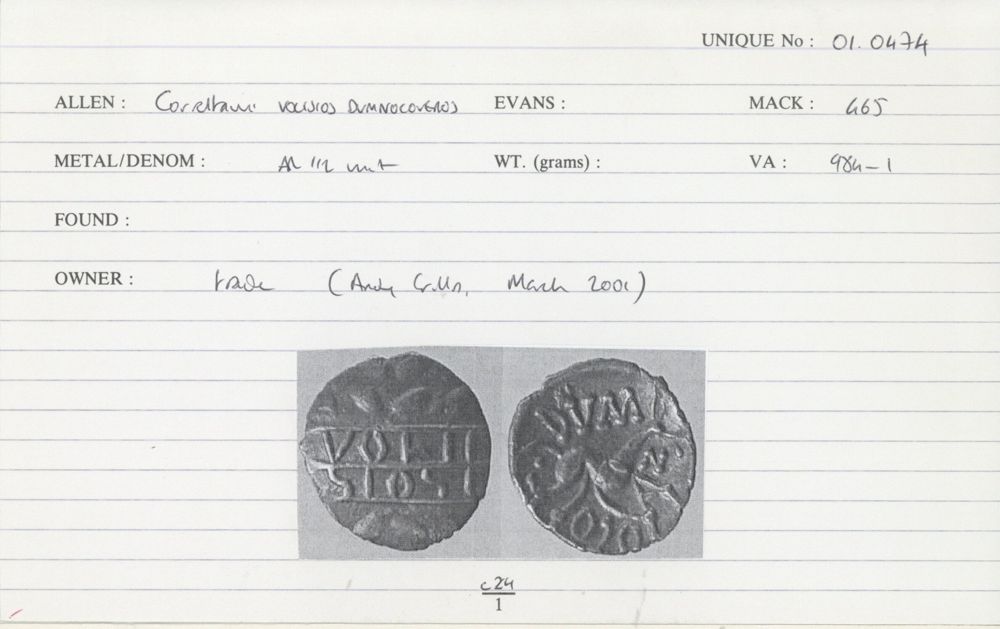 UNIQUE No : 01.0474
ALLEN : Corieltauvi VOLISIOS DUMNOCOVEROS EVANS : MACK : 465
METAL/DENOM : AR 1/2 unit WT. (grams) : VA : 984-1
FOUND :
OWNER : trade (Andy Gillis, March 2001)
VOLI
SIOS
DUM
N
c24
1